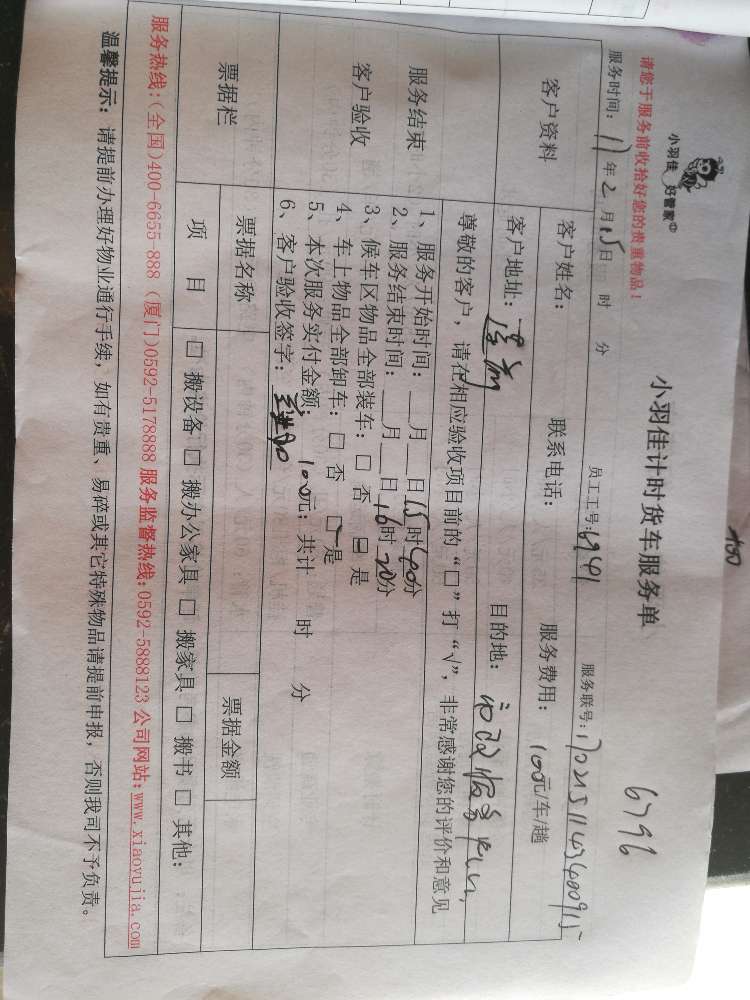 小羽佳 好管家
请您于服务前收拾好您的贵重物品！
小羽佳计时货车服务单
6796
服务时间：17年2月15日 时 分 员工工号：6941 服务联号：
客户资料
客户姓名： 联系电话： 服务费用：100元/车/趟
客户地址： 目的地：
尊敬的客户，请在相应验收项目前的“□”打“√”，非常感谢您的评价和意见
服务结束
客户验收
1、服务开始时间：__月__日15时40分
2、服务结束时间：__月__日16时20分
3、候车区物品全部装车：□ 否 □ 是
4、车上物品全部卸车：□ 否 □ 是
5、本次服务实付金额：100元；共计 时 分
6、客户验收签字：
票据栏
票据名称 票据金额
项 目 □ 搬设备 □ 搬办公家具 □ 搬家具 □ 搬书 □ 其他：
服务热线：(全国)400-6655-888 (厦门)0592-5178888 服务监督热线：0592-5888123 公司网站：www.xiaoyujia.com
温馨提示：请提前办理好物业通行手续，如有贵重、易碎或其它特殊物品请提前申报，否则我司不予负责。